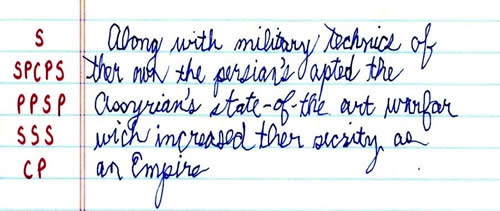 S Along with military technics of
SPCPS ther own the persian's apted the
PPSP Assyrian's state-of-the art warfar
SSS wich increased ther secsity as
CP an Empire